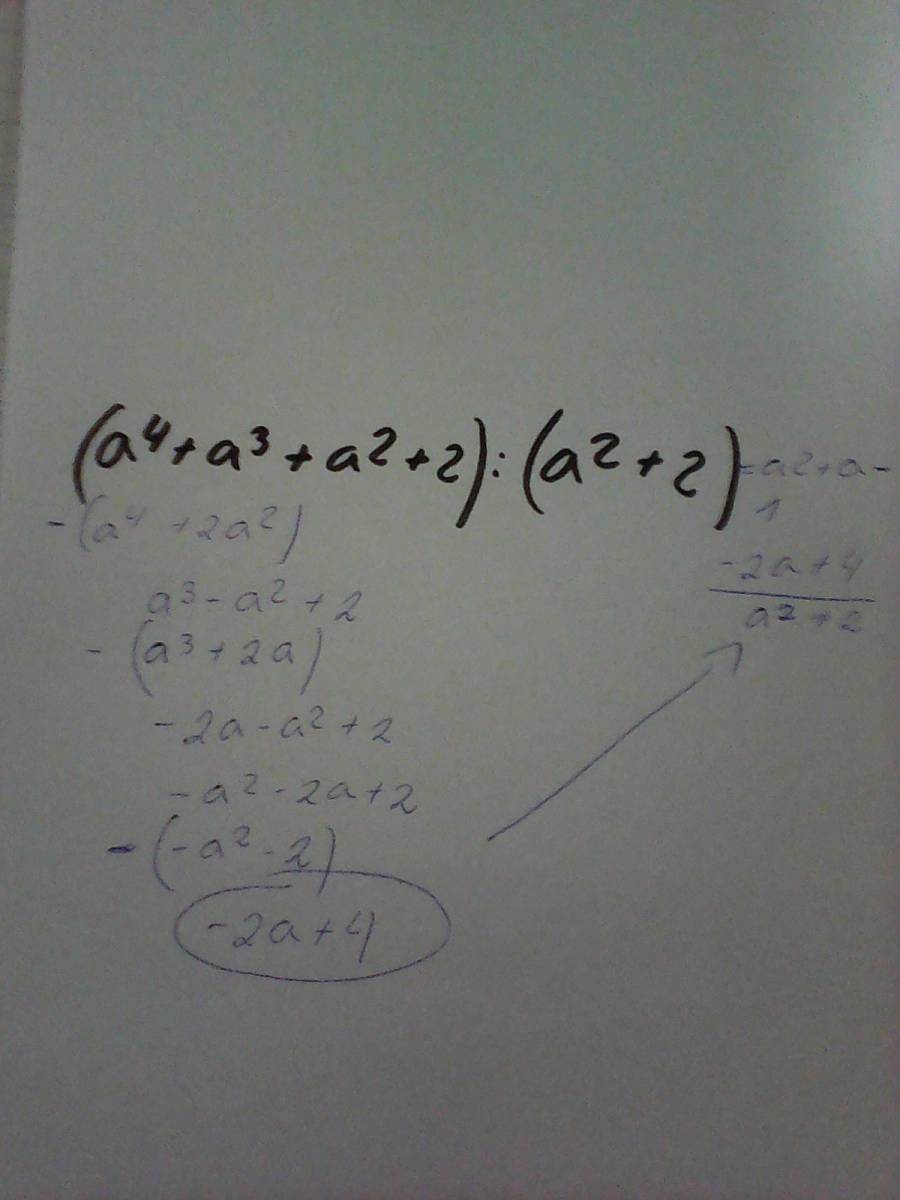 (a⁴+a³+a²+2):(a²+2)=a²+a-
1
-(a⁴+2a²)
-2a+4
a²+2
a³-a²+2
-(a³+2a)
-2a-a²+2
-a²-2a+2
-(-a²-2)
-2a+4